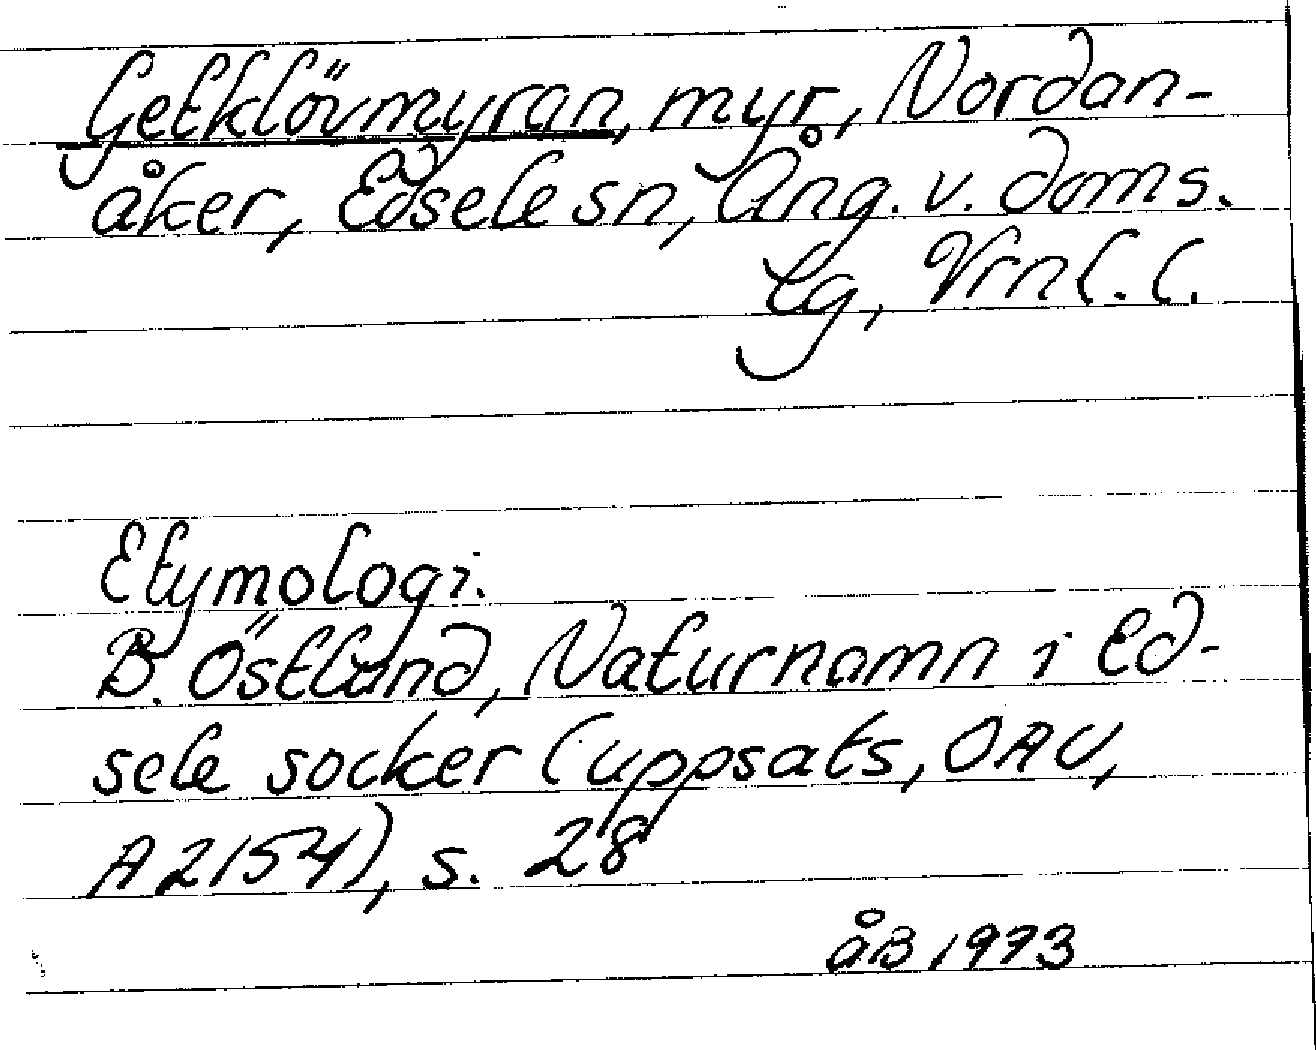 Getklövmyran, myr, Nordan-
åker, Edsele sn, Ång. v. doms.
lg, Vrnl. l.
Etymologi.
B. Östlund, Naturnamn i Ed-
sele socker (uppsats, OAU,
A 2154), s. 28
åB 1973